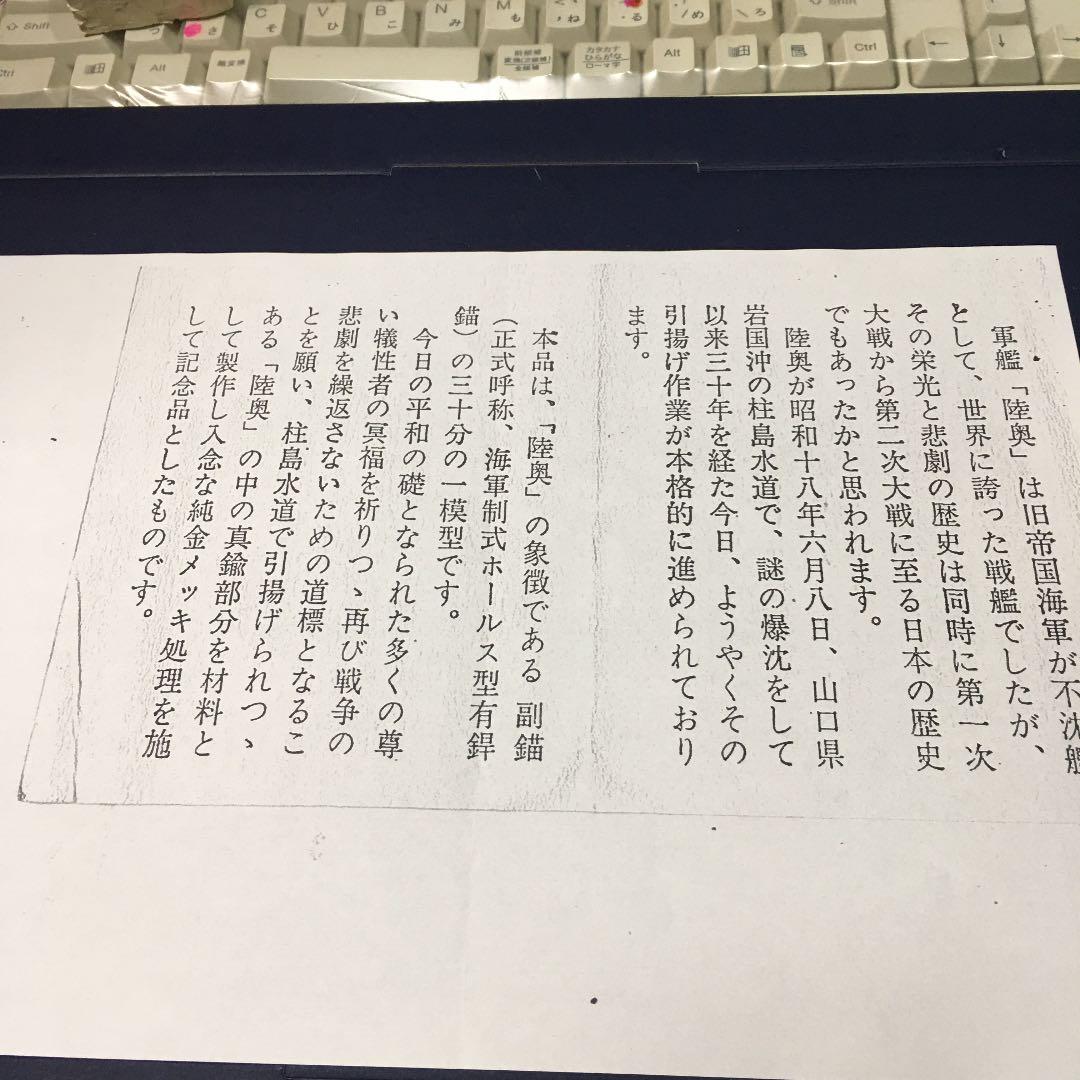 Shift
C
そ
V
ひ
B
こ
N
み
M
も
Shift
Ctrl
Alt
無変換
前候補
変換(次候補)
全候補
カタカナ
ひらがな
ローマ字
Alt
Ctrl
←
↓
→
軍艦「陸奥」は旧帝国海軍が不沈艦
として、世界に誇った戦艦でしたが、
その栄光と悲劇の歴史は同時に第一次
大戦から第二次大戦に至る日本の歴史
でもあったかと思われます。
陸奥が昭和十八年六月八日、山口県
岩国沖の柱島水道で、謎の爆沈をして
以来三十年を経た今日、ようやくその
引揚げ作業が本格的に進められており
ます。
本品は、「陸奥」の象徴である 副錨
(正式呼称、海軍制式ホールス型有銲
錨)の三十分の一模型です。
今日の平和の礎となられた多くの尊
い犠性者の冥福を祈りつゝ再び戦争の
悲劇を繰返さないための道標となるこ
とを願い、柱島水道で引揚げられつゝ
ある「陸奥」の中の真鍮部分を材料と
して製作し入念な純金メッキ処理を施
して記念品としたものです。